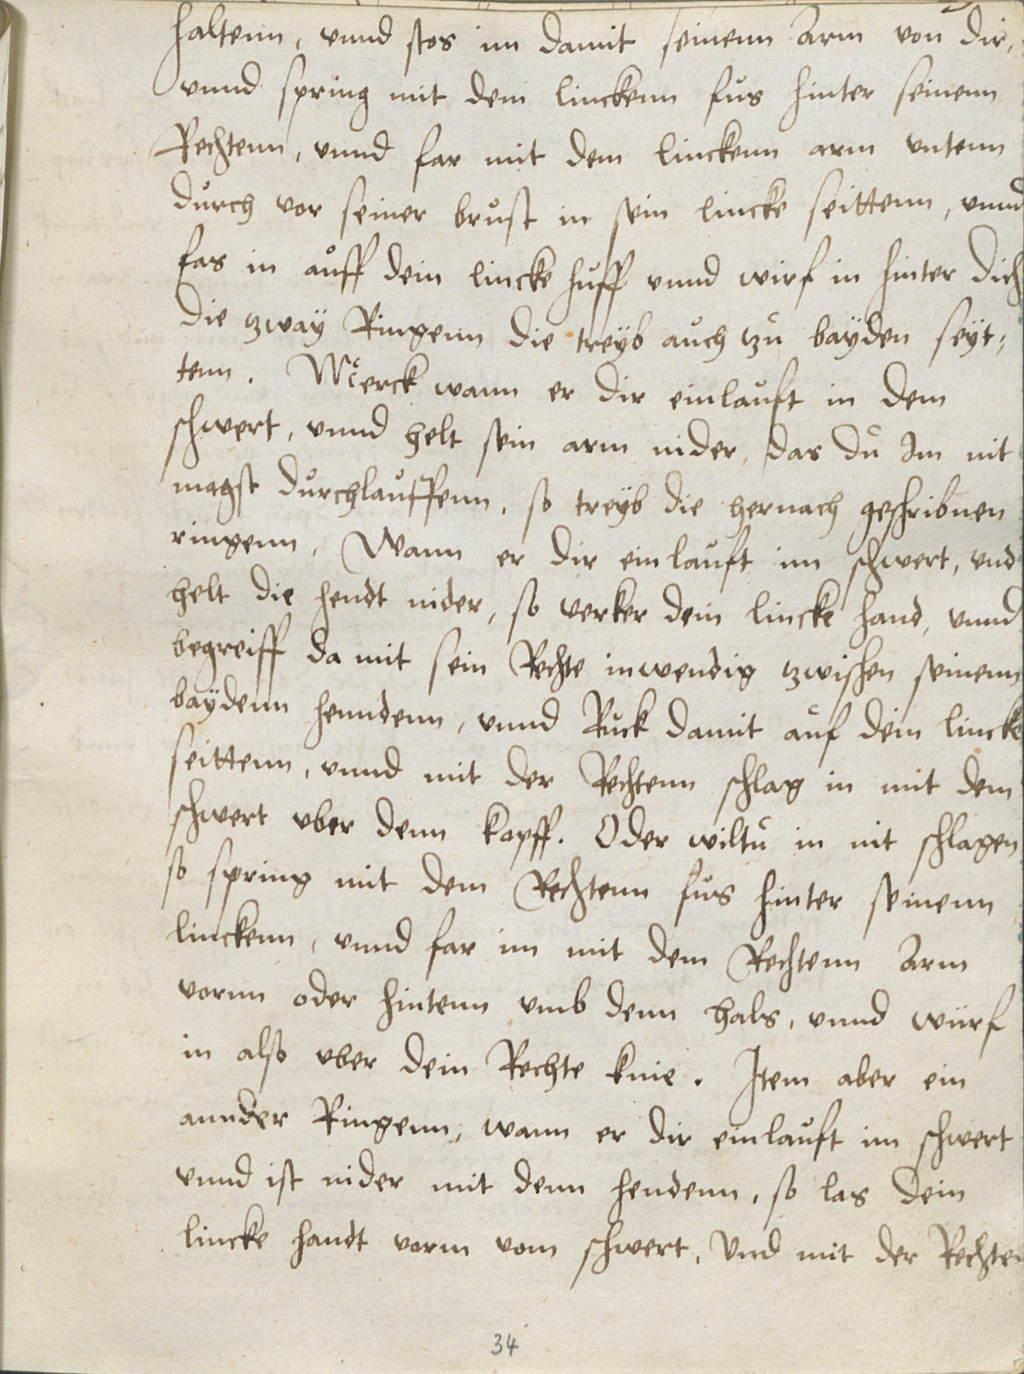 haltenn, vnnd stos im damit seinenn Arm von dir,
vnnd spring mit dem linckenn fůs hinter seinenn
Rechtenn, vnnd far mit dem linckenn arm vntenn
důrch vor seiner brůst in sein lincke seittenn, vnnd
fas in aůff dein lincke hůff vnnd wirf in hinter dich
die tzwaÿ Ringenn die treÿb aůch tzů baÿden seÿt-
tenn. Merck wann er dir einlaůft in dem
schwert, vnnd helt sein arm nider, das dů Im nit
magst důrchlaůffenn, so treÿb die hernach geschribnen
ringenn, Wann er dir einlaůft im schwert, vnd
helt die hendt nider, so verker dein lincke hand, vnnd
begreiff da mit sein Rechte inwendig tzwischen seinenn
baÿdenn henndenn, vnnd Růck damit aůf dein lincke
seittenn, vnnd mit der Rechtenn schlag in mit dem
schwert vber denn kopff. Oder wiltů in nit schlagen
so spring mit dem Rechtenn fůs hinter seinenn
linckenn, vnnd far im mit dem Rechtenn Arm
vornn oder hintenn vmb denn hals, vnnd würf
in also vber dein Rechte knie. Item aber ein
annder Ringenn, wann er dir einlaůft im schwert
vnnd ist nider mit denn hendenn, so las dein
lincke handt varm vom schwert, Vnd mit der Rechten
34